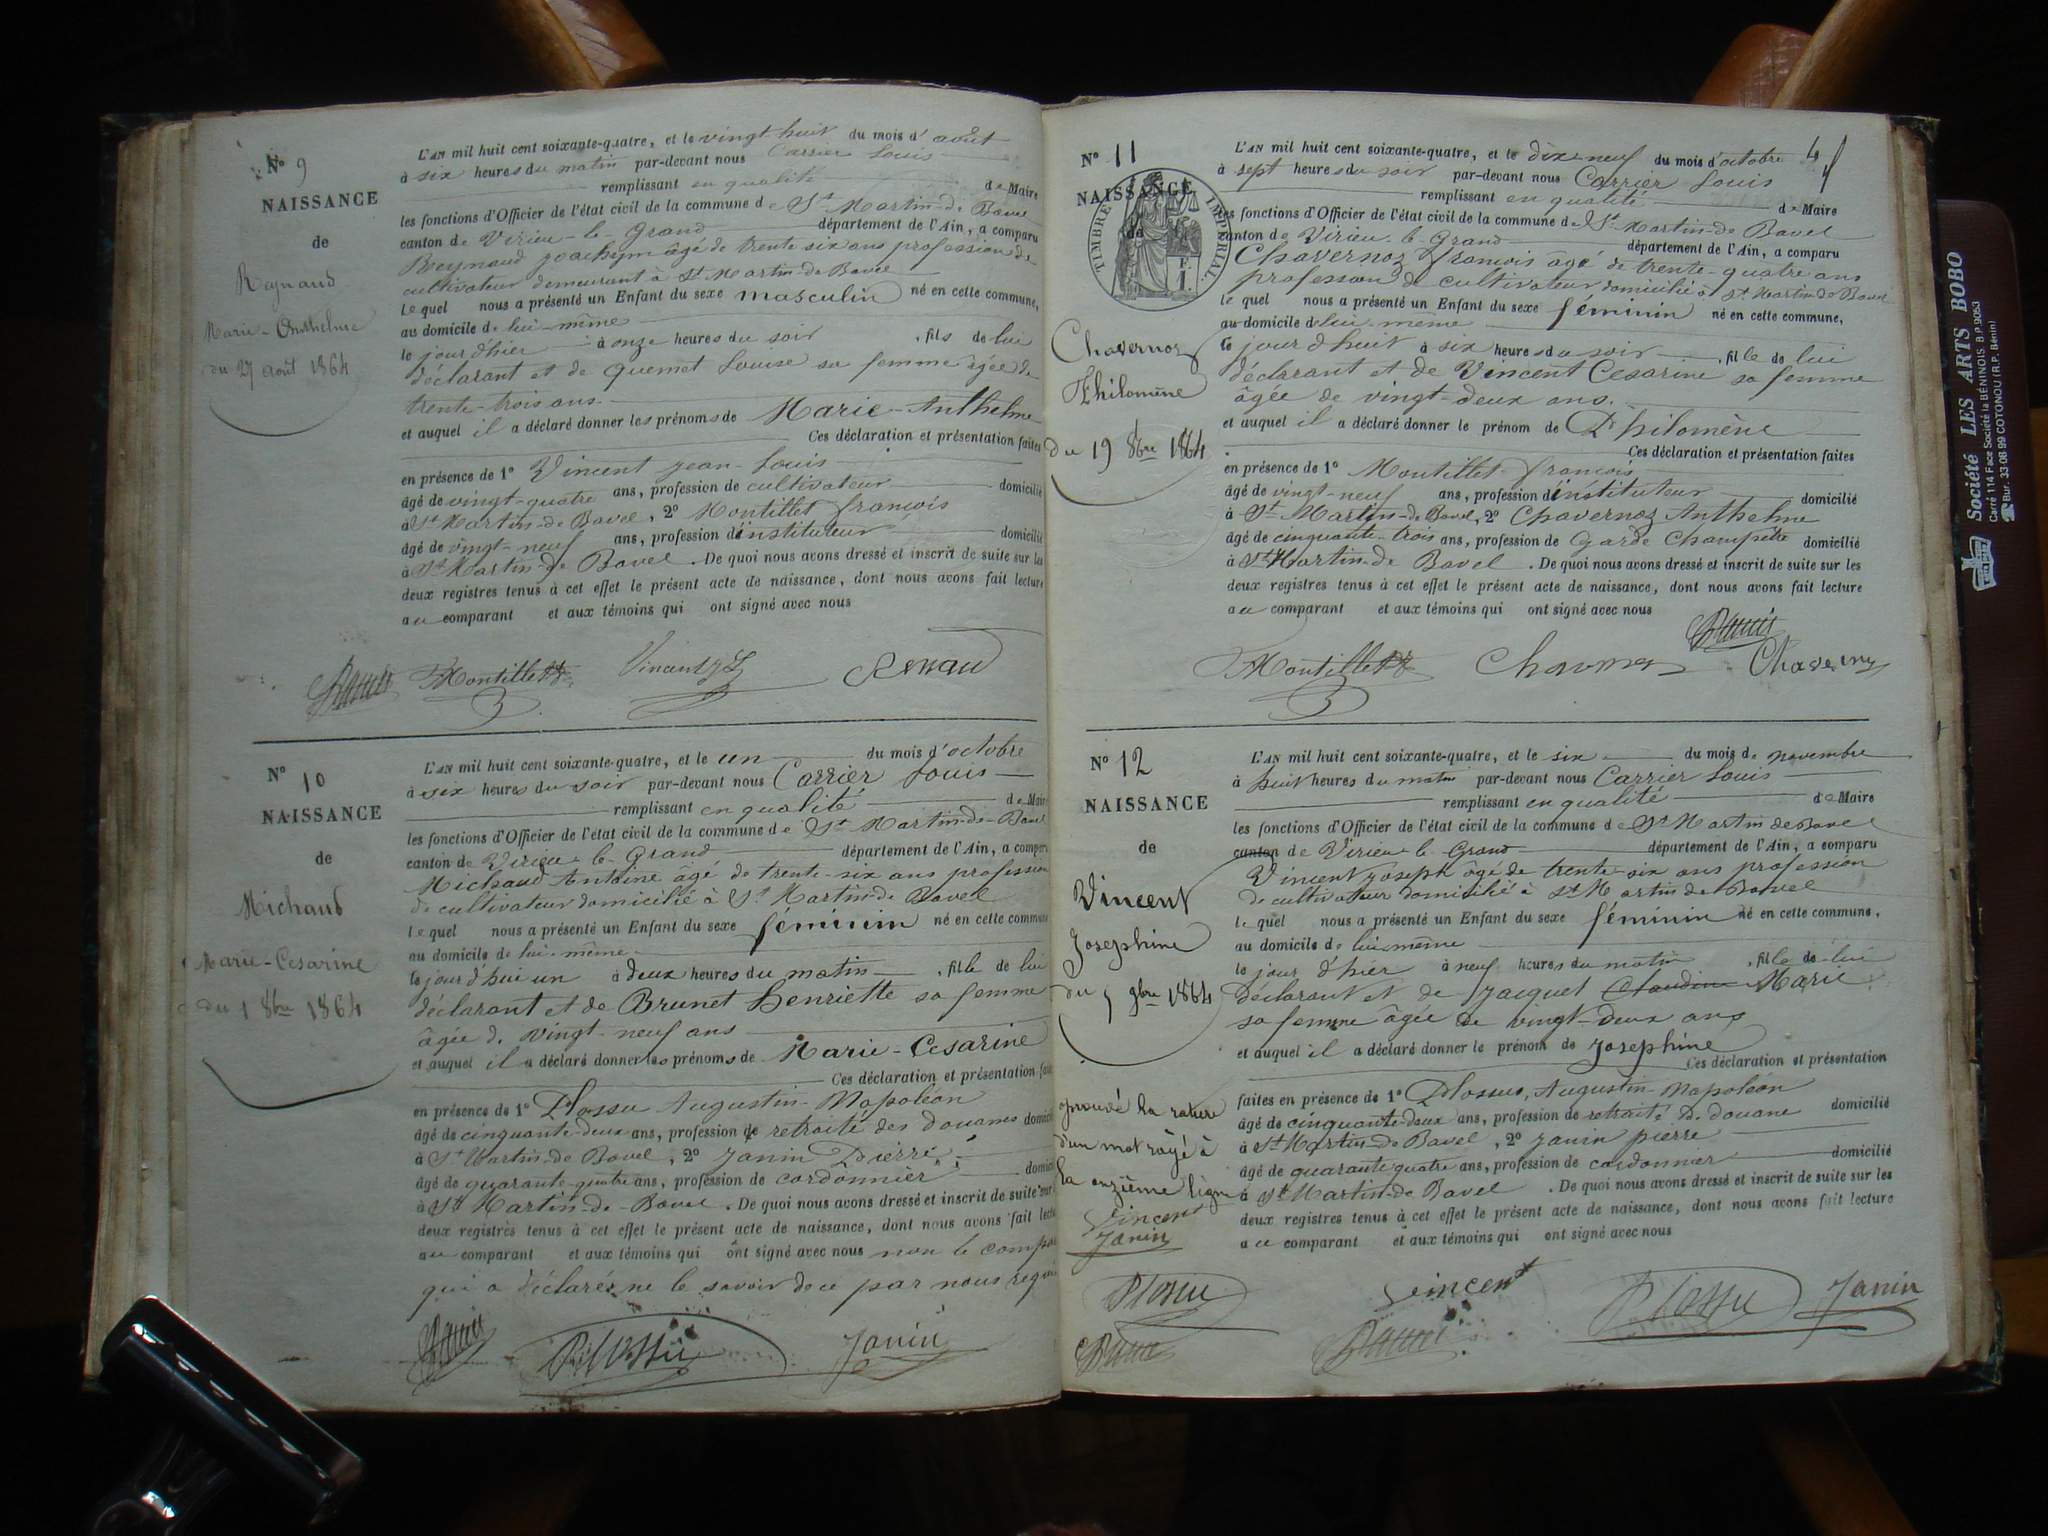 N° 9
NAISSANCE
de
Reynaud
Marie-Anthelme
du 27 août 1864
L'AN mil huit cent soixante-quatre, et le vingt huit du mois d'août
à six heures du matin par-devant nous Carrier Louis
remplissant en qualité de Maire
les fonctions d'Officier de l'état civil de la commune de St Martin-de Bavel
canton de Virieu-le-Grand département de l'Ain, a comparu
Reynaud joachym âgé de trente six ans profession de
cultivateur demeurant à St Martin-de Bavel
Lequel nous a présenté un Enfant du sexe masculin né en cette commune,
au domicile de lui-même
le jour d'hier à onze heures du soir, fils de lui
déclarant et de Quemet Louise sa femme âgée de
trente-trois ans
et auquel il a déclaré donner les prénoms de Marie-Anthelme
Ces déclaration et présentation faites
en présence de 1° Vincent jean-Louis
âgé de vingt-quatre ans, profession de cultivateur domicilié
à St Martin-de Bavel, 2° Montillet françois
âgé de vingt-neuf ans, profession d'instituteur domicilié
à St Martin-de Bavel. De quoi nous avons dressé et inscrit de suite sur les
deux registres tenus à cet effet le présent acte de naissance, dont nous avons fait lecture
au comparant et aux témoins qui ont signé avec nous
Montillet Vincent J L Renau
N° 10
NAISSANCE
de
Michaud
Marie-Cesarine
du 1 8bre 1864
L'AN mil huit cent soixante-quatre, et le un du mois d'octobre
à six heures du soir par-devant nous Carrier Louis
remplissant en qualité de Maire
les fonctions d'Officier de l'état civil de la commune de St Martin-de-Bavel
canton de Virieu-le-Grand département de l'Ain, a comparu
Michaud Antoine âgé de trente-six ans profession
de cultivateur domicilié à St Martin-de Bavel
lequel nous a présenté un Enfant du sexe féminin né en cette commune
au domicile de lui-même
le jour d'hui un à deux heures du matin, fille de lui
déclarant et de Brunet Henriette sa femme
âgée de vingt-neuf ans
et auquel il a déclaré donner les prénoms de Marie-Cesarine
Ces déclaration et présentation faites
en présence de 1° Plossu Augustin-Napoléon
âgé de cinquante-deux ans, profession de retraité des douanes domicilié
à St Martin-de Bavel, 2° Janin Pierre
âgé de quarante-quatre ans, profession de cordonnier domicilié
à St Martin-de-Bavel. De quoi nous avons dressé et inscrit de suite sur
deux registres tenus à cet effet le présent acte de naissance, dont nous avons fait lecture
au comparant et aux témoins qui ont signé avec nous non le compa
qui a déclaré ne le savoir de ce par nous requis
Plossu Janin
N° 11
NAISSANCE
de
TIMBRE IMPÉRIAL
1 F.
Chavernoz
Philomène
du 19 8bre 1864
L'AN mil huit cent soixante-quatre, et le dix-neuf du mois d'octobre
à sept heures du soir par-devant nous Carrier Louis
remplissant en qualité de Maire
les fonctions d'Officier de l'état civil de la commune de St Martin-de Bavel
canton de Virieu-le-Grand département de l'Ain, a comparu
Chavernoz françois âgé de trente-quatre ans
profession de cultivateur domicilié à St Martin-de Bavel
lequel nous a présenté un Enfant du sexe féminin né en cette commune,
au domicile de lui-même
le jour d'hui à six heures du soir, fille de lui
déclarant et de Vincent Cesarine sa femme
âgée de vingt-deux ans.
et auquel il a déclaré donner le prénom de Philomène
Ces déclaration et présentation faites
en présence de 1° Montillet françois
âgé de vingt-neuf ans, profession d'instituteur domicilié
à St Martin-de-Bavel, 2° Chavernoz Anthelme
âgé de cinquante-trois ans, profession de Garde Champêtre domicilié
à St Martin-de Bavel. De quoi nous avons dressé et inscrit de suite sur les
deux registres tenus à cet effet le présent acte de naissance, dont nous avons fait lecture
au comparant et aux témoins qui ont signé avec nous
Montillet
N° 12
NAISSANCE
de
Vincent
Josephine
du 5 9bre 1864
L'AN mil huit cent soixante-quatre, et le six du mois de novembre
à huit heures du matin par-devant nous Carrier Louis
remplissant en qualité de Maire
les fonctions d'Officier de l'état civil de la commune de St Martin de Bavel
canton de Virieu le Grand département de l'Ain, a comparu
Vincent Joseph âgé de trente-six ans profession
de cultivateur domicilié à St Martin de Bavel
lequel nous a présenté un Enfant du sexe féminin né en cette commune,
au domicile de lui-même
le jour d'hier à neuf heures du matin, fille de lui
déclarant et de Jacquet Claudine Marie
sa femme âgée de vingt-deux ans
et auquel il a déclaré donner le prénom de Josephine
Ces déclaration et présentation
faites en présence de 1° Plossu, Augustin-Napoléon
âgé de cinquante-deux ans, profession de retraité D. douane domicilié
à St Martin-de Bavel, 2° Janin pierre
âgé de quarante quatre ans, profession de cordonnier domicilié
à St Martin-de Bavel. De quoi nous avons dressé et inscrit de suite sur les
deux registres tenus à cet effet le présent acte de naissance, dont nous avons fait lecture
au comparant et aux témoins qui ont signé avec nous
aprouvé la rature
d'un mot rayé à
la onzième ligne
Vincent
Janin
Plossu Vincent Plossu Janin
Société LES ARTS BOBO
Carré 114 Face Société la BÉNINOIS. B.P. 9053
Bur. 33 08 99 COTONOU (R.P. Bénin)